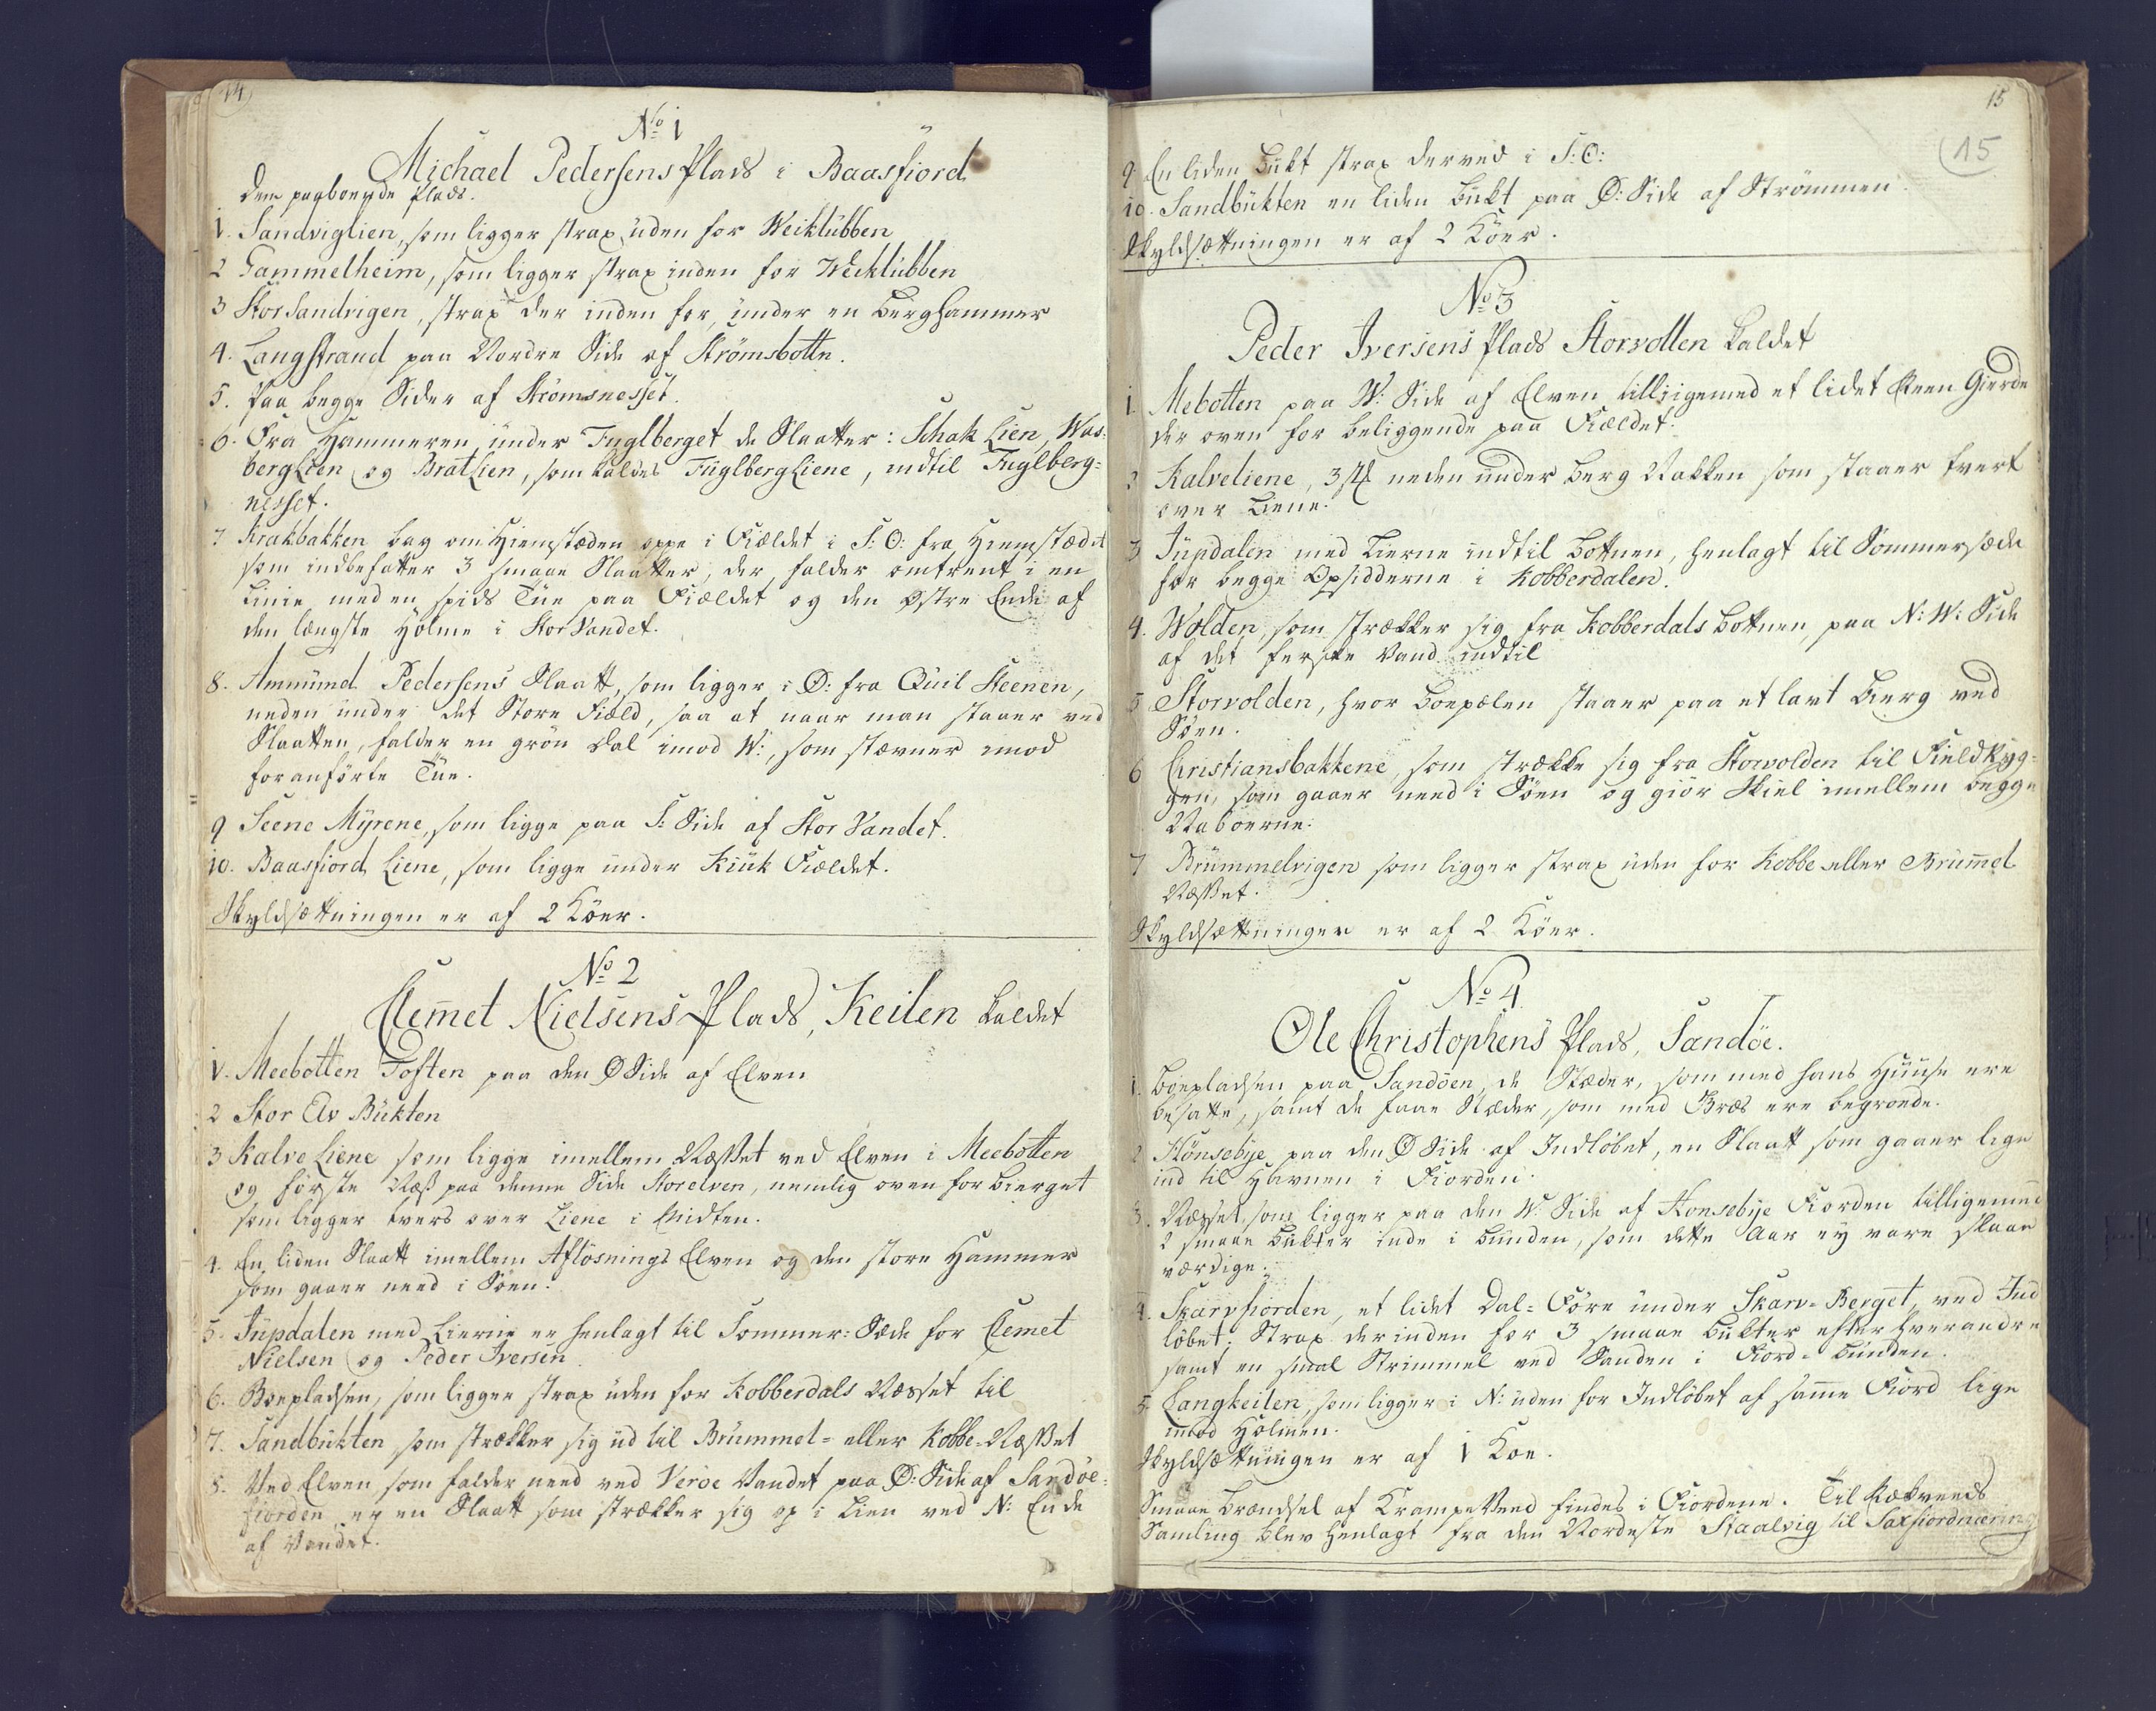 14
No 1
Michael Pedersens Plads i Baasfiord
den paaboende Plads.
1. Sandviglien, som ligger strax uden for Weiklubben
2 Gammelheim, som ligger strax inden for Weiklubben
3 Stor Sandvigen, strax der inden for, under en Berghammer
4. Langstrand paa Nordre Side af Strömsbotten.
5. Paa begge Sider af Strömsnesset.
6. Fra Hammeren under Fuglberget de Slaatter: Schak Lien, Was-
bergLien og BratLien, som kaldes FuglbergLiene, indtil Fuglberg-
nesset.
7 Krakbakken bag om Hiemstæden oppe i Fieldet i S:O: fra Hiemstædet
som indbefatter 3 smaae Slaatter, der falder omtrent i en
Linie med en spids Tüe paa Fieldet og den Østre Ende af
den længste Holme i Stor Vandet.
8. Ammund Pedersens Slaatt, som ligger i Ø: fra Quil Steenen,
neden under det Store Field, saa at naar man staaer ved
Slaatten, falder en grön Dal imod W:, som stævner imod
foranførte Tüe.
9 Seene Myrene, som ligge paa S: Side af Stor Vandet.
10. Baasfiord Liene, som ligge under Kiük Fieldet.
Skyldsætningen er af 2 Köer.
No 2
Clem̄et Nielsens Plads, Keilen kaldet
1. Meebotten Toften paa den Ø Side af Elven
2 Stor Elv Bukten
3 Kalve Liene som ligge imellem Næsset ved Elven i Meebotten
og første Næs paa denne Side Storelven, nemlig oven for Bierget
som ligger tvers over Liene i Midten.
4. En liden Slaatt imellem Aflösnings Elven og den store Hammer
som gaaer need i Söen.
5. Jüpdalen med Lierne er henlagt til Sommer-Sæde for Clemet
Nielsen og Peder Iversen.
6. Boepladsen, som ligger strax uden for Kobberdals Næsset til
7. Sandbukten, som strækker sig ud til Brummel- eller Kobbe-Næsset
8. Ved Elven, som falder need ved Veröe Vandet paa Ø: Side af Sandöe-
fiorden, er en Slaatt som strækker sig op i Lien ved N: Ende
af Vandet.
15
15
9 En liden Bukt strax derved i S:O:
10. Sandbukten en liden Bukt paa Ø: Side af Strömmen.
Skyldsætningen er af 2 Köer.
No 3
Peder Iversens Plads Storvollen kaldet
1. Mebotten paa W: Side af Elven tilligemed et lidet Reen Gierde
der oven for beliggende paa Fieldet.
2 Kalveliene, 3 st neden under Berg Nakken som staaer tvert
over Liene.
3 Jüpdalen med Lierne indtil Bottnen, henlagt til Sommersæde
for begge Opsidderne i Kobberdalen.
4. Wolden, som strækker sig fra Kobberdals Bottnen paa N:W: Side
af det ferske Vand indtil
5 Storvolden, hvor Boepælen staaer paa et lavt Bierg ved
Söen.
6 Christiansbakkene, som strække sig fra Storvolden til Fieldryg-
gen, som gaaer need i Söen og giör Skiel imellem begge
Naboerne.
7 Brummelvigen som ligger strax uden for Kobbe eller Brum̄el
Næsset.
Skyldsætningen er af 2 Köer.
No 4
Ole Christophens Plads, Sandöe.
1. Boepladsen paa Sandöen, de Stæder, som med hans Huuse ere
besatte, samt de faae Stæder, som med Græs ere begroede.
2 Hönsebye paa den Ø Side af Indlöbet, en Slaatt som gaaer lige
ind til Havnen i Fiorden.
3. Næsset, som ligger paa den W: Side af Honsebye Fiorden tilligemed
2 smaae Bukter inde i Bunden, som dette Aar ey vare slaae
værdige.
4. Skarvfiorden, et lidet Dal-Före under Skarv-Berget, ved Ind
löbet; Strax derinden for 3 smaae Bukter efter hverandre
samt en smal Strimmel ved Sanden i Fiord-Bunden.
5. Langkeilen, som ligger i N: uden for Indlöbet af sam̄e Fiord lige
imod Holmen.
Skyldsætningen er af 1 Koe.
Smaae Brændsel af KrampeVeed findes i Fiordene. Til Rækveeds
Samling blev henlagt fra den Nordeste Staalvig til Saxfiordnæring